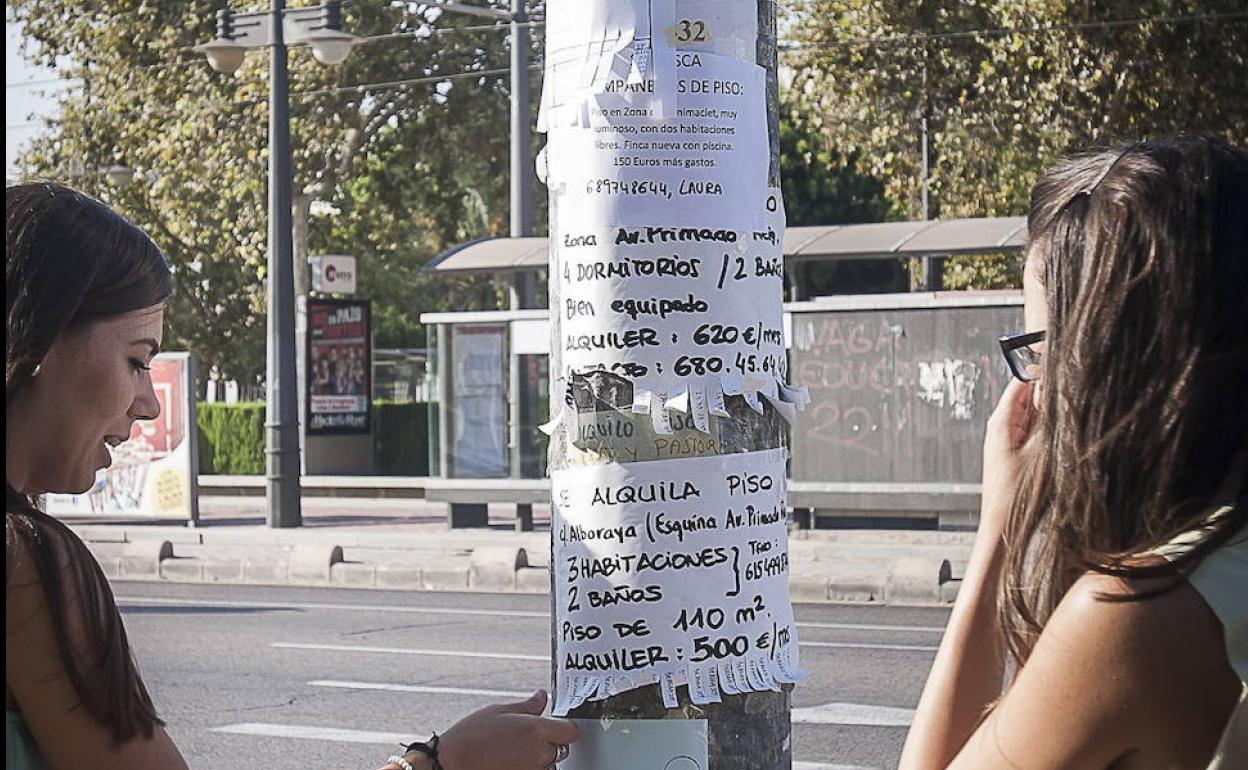 32
SCA
MPAÑE S DE PISO:
Piso en Zona nimaclet, muy
luminoso, con dos habitaciones
libres. Finca nueva con piscina.
150 Euros más gastos.
689748644, LAURA
Zona Av. Primado
4 DORMITORIOS / 2 BAÑOS
Bien equipado
ALQUILER : 620 €/mes
: 680.45.64
ALQUILO
Y PASTOR
SE ALQUILA PISO
Alboraya (Esquina Av. Primado
3 HABITACIONES
2 BAÑOS
PISO DE 110 m².
ALQUILER : 500 €/mes
VAGA
EDUCA
22M
Media Markt